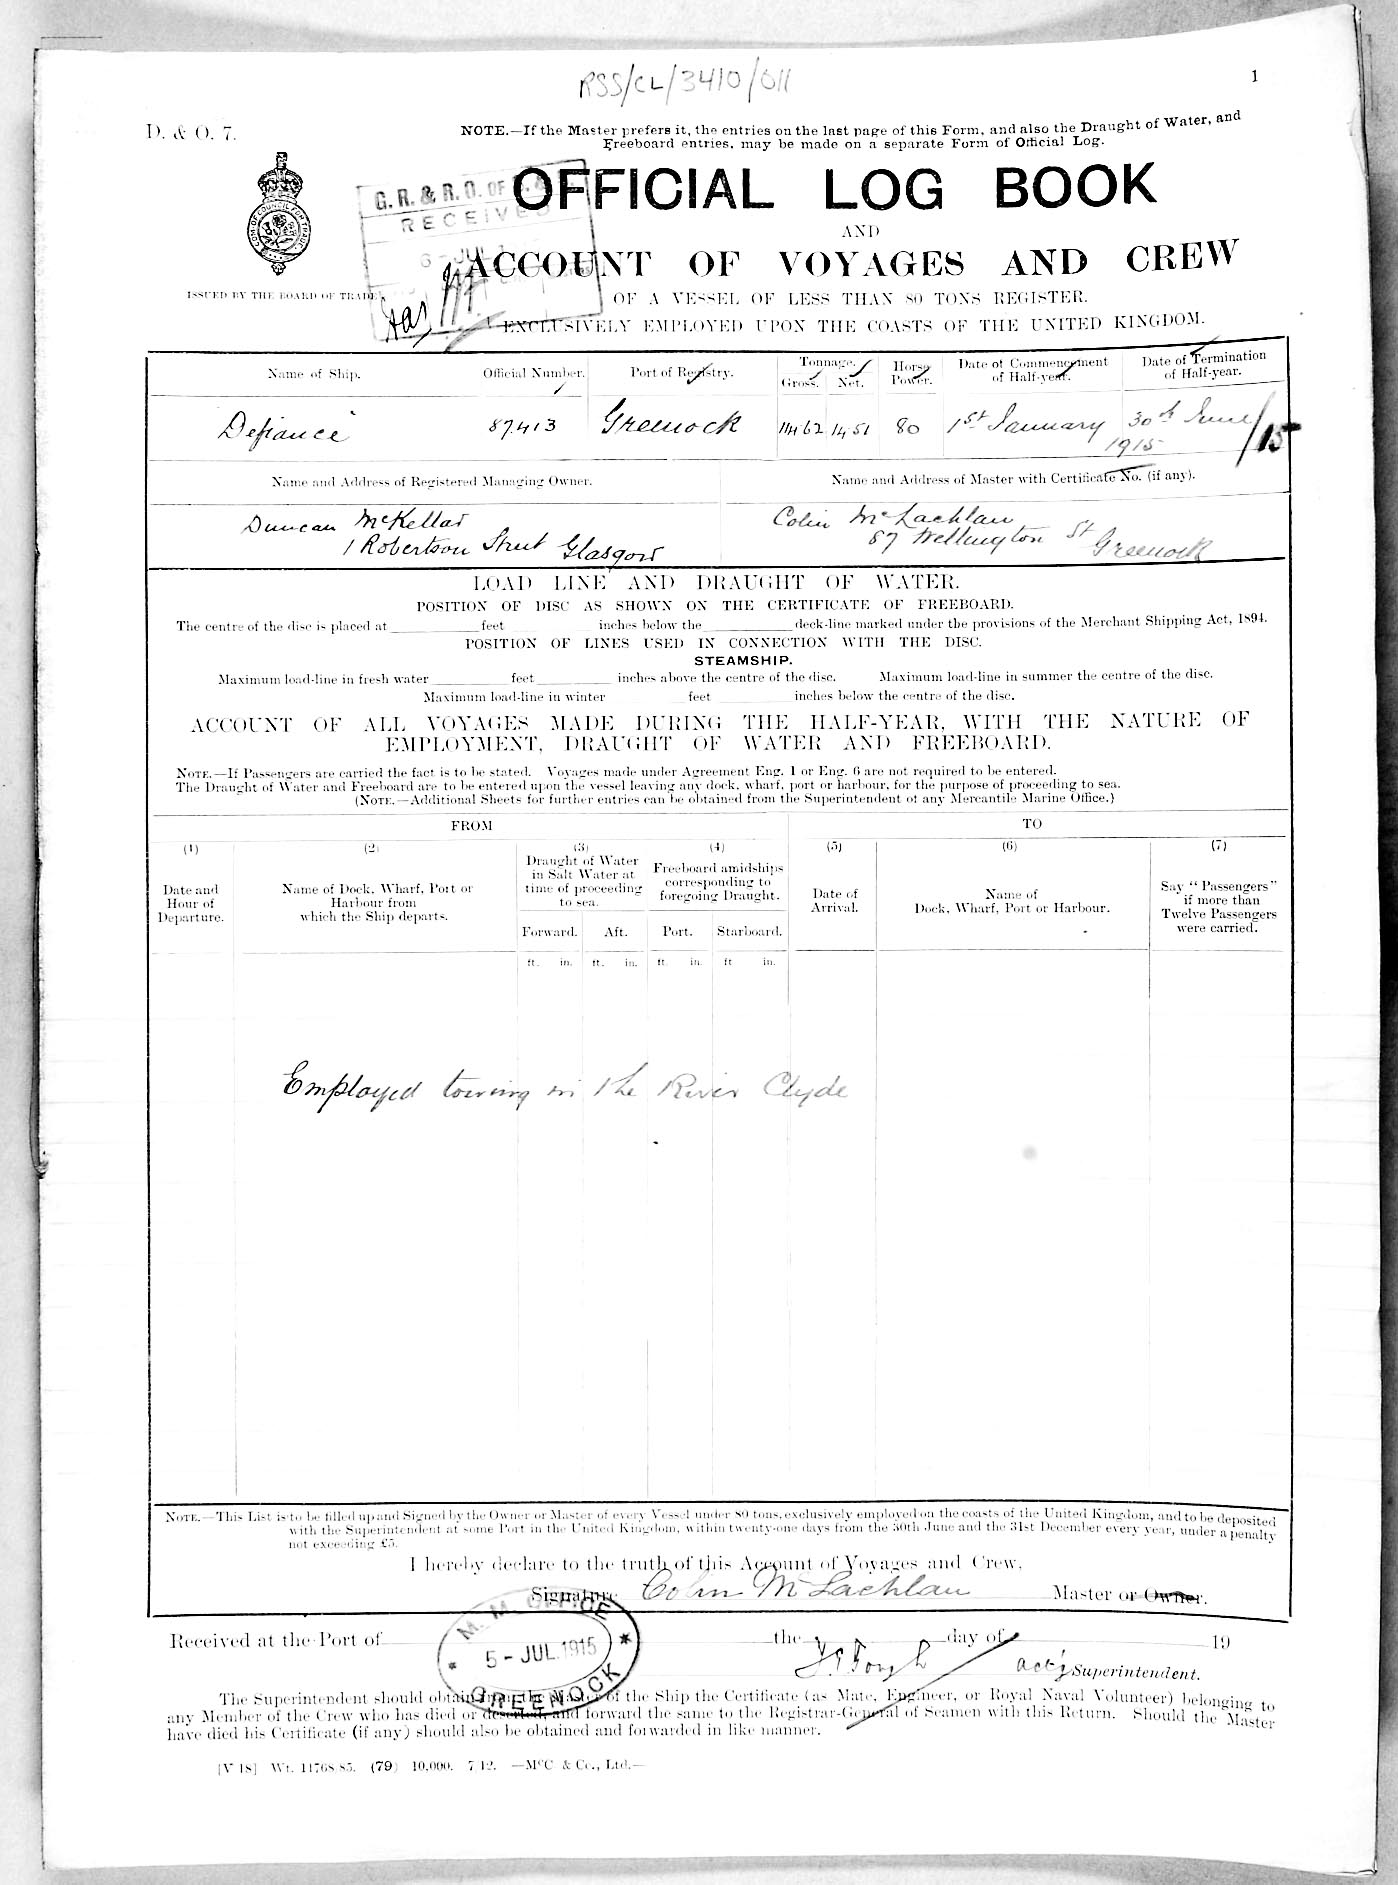 RSS/CL/3410/011
1
D. & O. 7.
NOTE.—If the Master prefers it, the entries on the last page of this Form, and also the Draught of Water, and
Freeboard entries, may be made on a separate Form of Official Log.
G. R. & R. O. OF S. &
RECEIVED
6 - JUL
OFFICIAL LOG BOOK
AND
ACCOUNT OF VOYAGES AND CREW
ISSUED BY THE BOARD OF TRADE
OF A VESSEL OF LESS THAN 80 TONS REGISTER.
EXCLUSIVELY EMPLOYED UPON THE COASTS OF THE UNITED KINGDOM.
Name of Ship. Official Number. Port of Registry. Tonnage. Gross. Net. Horse Power. Date of Commencement of Half-year. Date of Termination of Half-year.
Defiance 87413 Greenock 114.62 14.51 80 1st January 1915 30th June /15
Name and Address of Registered Managing Owner. Name and Address of Master with Certificate No. (if any).
Duncan McKellar
1 Robertson Street Glasgow
Colin McLachlan
87 Wellington St Greenock
LOAD LINE AND DRAUGHT OF WATER.
POSITION OF DISC AS SHOWN ON THE CERTIFICATE OF FREEBOARD.
The centre of the disc is placed at feet inches below the deck-line marked under the provisions of the Merchant Shipping Act, 1894.
POSITION OF LINES USED IN CONNECTION WITH THE DISC.
STEAMSHIP.
Maximum load-line in fresh water feet inches above the centre of the disc. Maximum load-line in summer the centre of the disc.
Maximum load-line in winter feet inches below the centre of the disc.
ACCOUNT OF ALL VOYAGES MADE DURING THE HALF-YEAR, WITH THE NATURE OF
EMPLOYMENT, DRAUGHT OF WATER AND FREEBOARD.
NOTE.—If Passengers are carried the fact is to be stated. Voyages made under Agreement Eng. 1 or Eng. 6 are not required to be entered.
The Draught of Water and Freeboard are to be entered upon the vessel leaving any dock, wharf, port or harbour, for the purpose of proceeding to sea.
(NOTE.—Additional Sheets for further entries can be obtained from the Superintendent of any Mercantile Marine Office.)
FROM TO
(1) (2) (3) (4) (5) (6) (7)
Date and Hour of Departure.
Name of Dock, Wharf, Port or Harbour from which the Ship departs.
Draught of Water in Salt Water at time of proceeding to sea.
Freeboard amidships corresponding to foregoing Draught.
Date of Arrival.
Name of Dock, Wharf, Port or Harbour.
Say "Passengers" if more than Twelve Passengers were carried.
Forward. Aft. Port. Starboard.
ft. in. ft. in. ft. in. ft in.
Employed towing in the River Clyde
NOTE.—This List is to be filled up and Signed by the Owner or Master of every Vessel under 80 tons, exclusively employed on the coasts of the United Kingdom, and to be deposited
with the Superintendent at some Port in the United Kingdom, within twenty-one days from the 30th June and the 31st December every year, under a penalty
not exceeding £5.
I hereby declare to the truth of this Account of Voyages and Crew.
Signature Colin McLachlan Master or Owner.
M. M. OFFICE
5 - JUL. 1915
GREENOCK
Received at the Port of the day of 19
actg Superintendent.
The Superintendent should obtain from the Master of the Ship the Certificate (as Mate, Engineer, or Royal Naval Volunteer) belonging to
any Member of the Crew who has died or deserted, and forward the same to the Registrar-General of Seamen with this Return. Should the Master
have died his Certificate (if any) should also be obtained and forwarded in like manner.
[V 18] Wt. 11768/85. (79) 10,000. 7/12. —McC & Co., Ltd.—